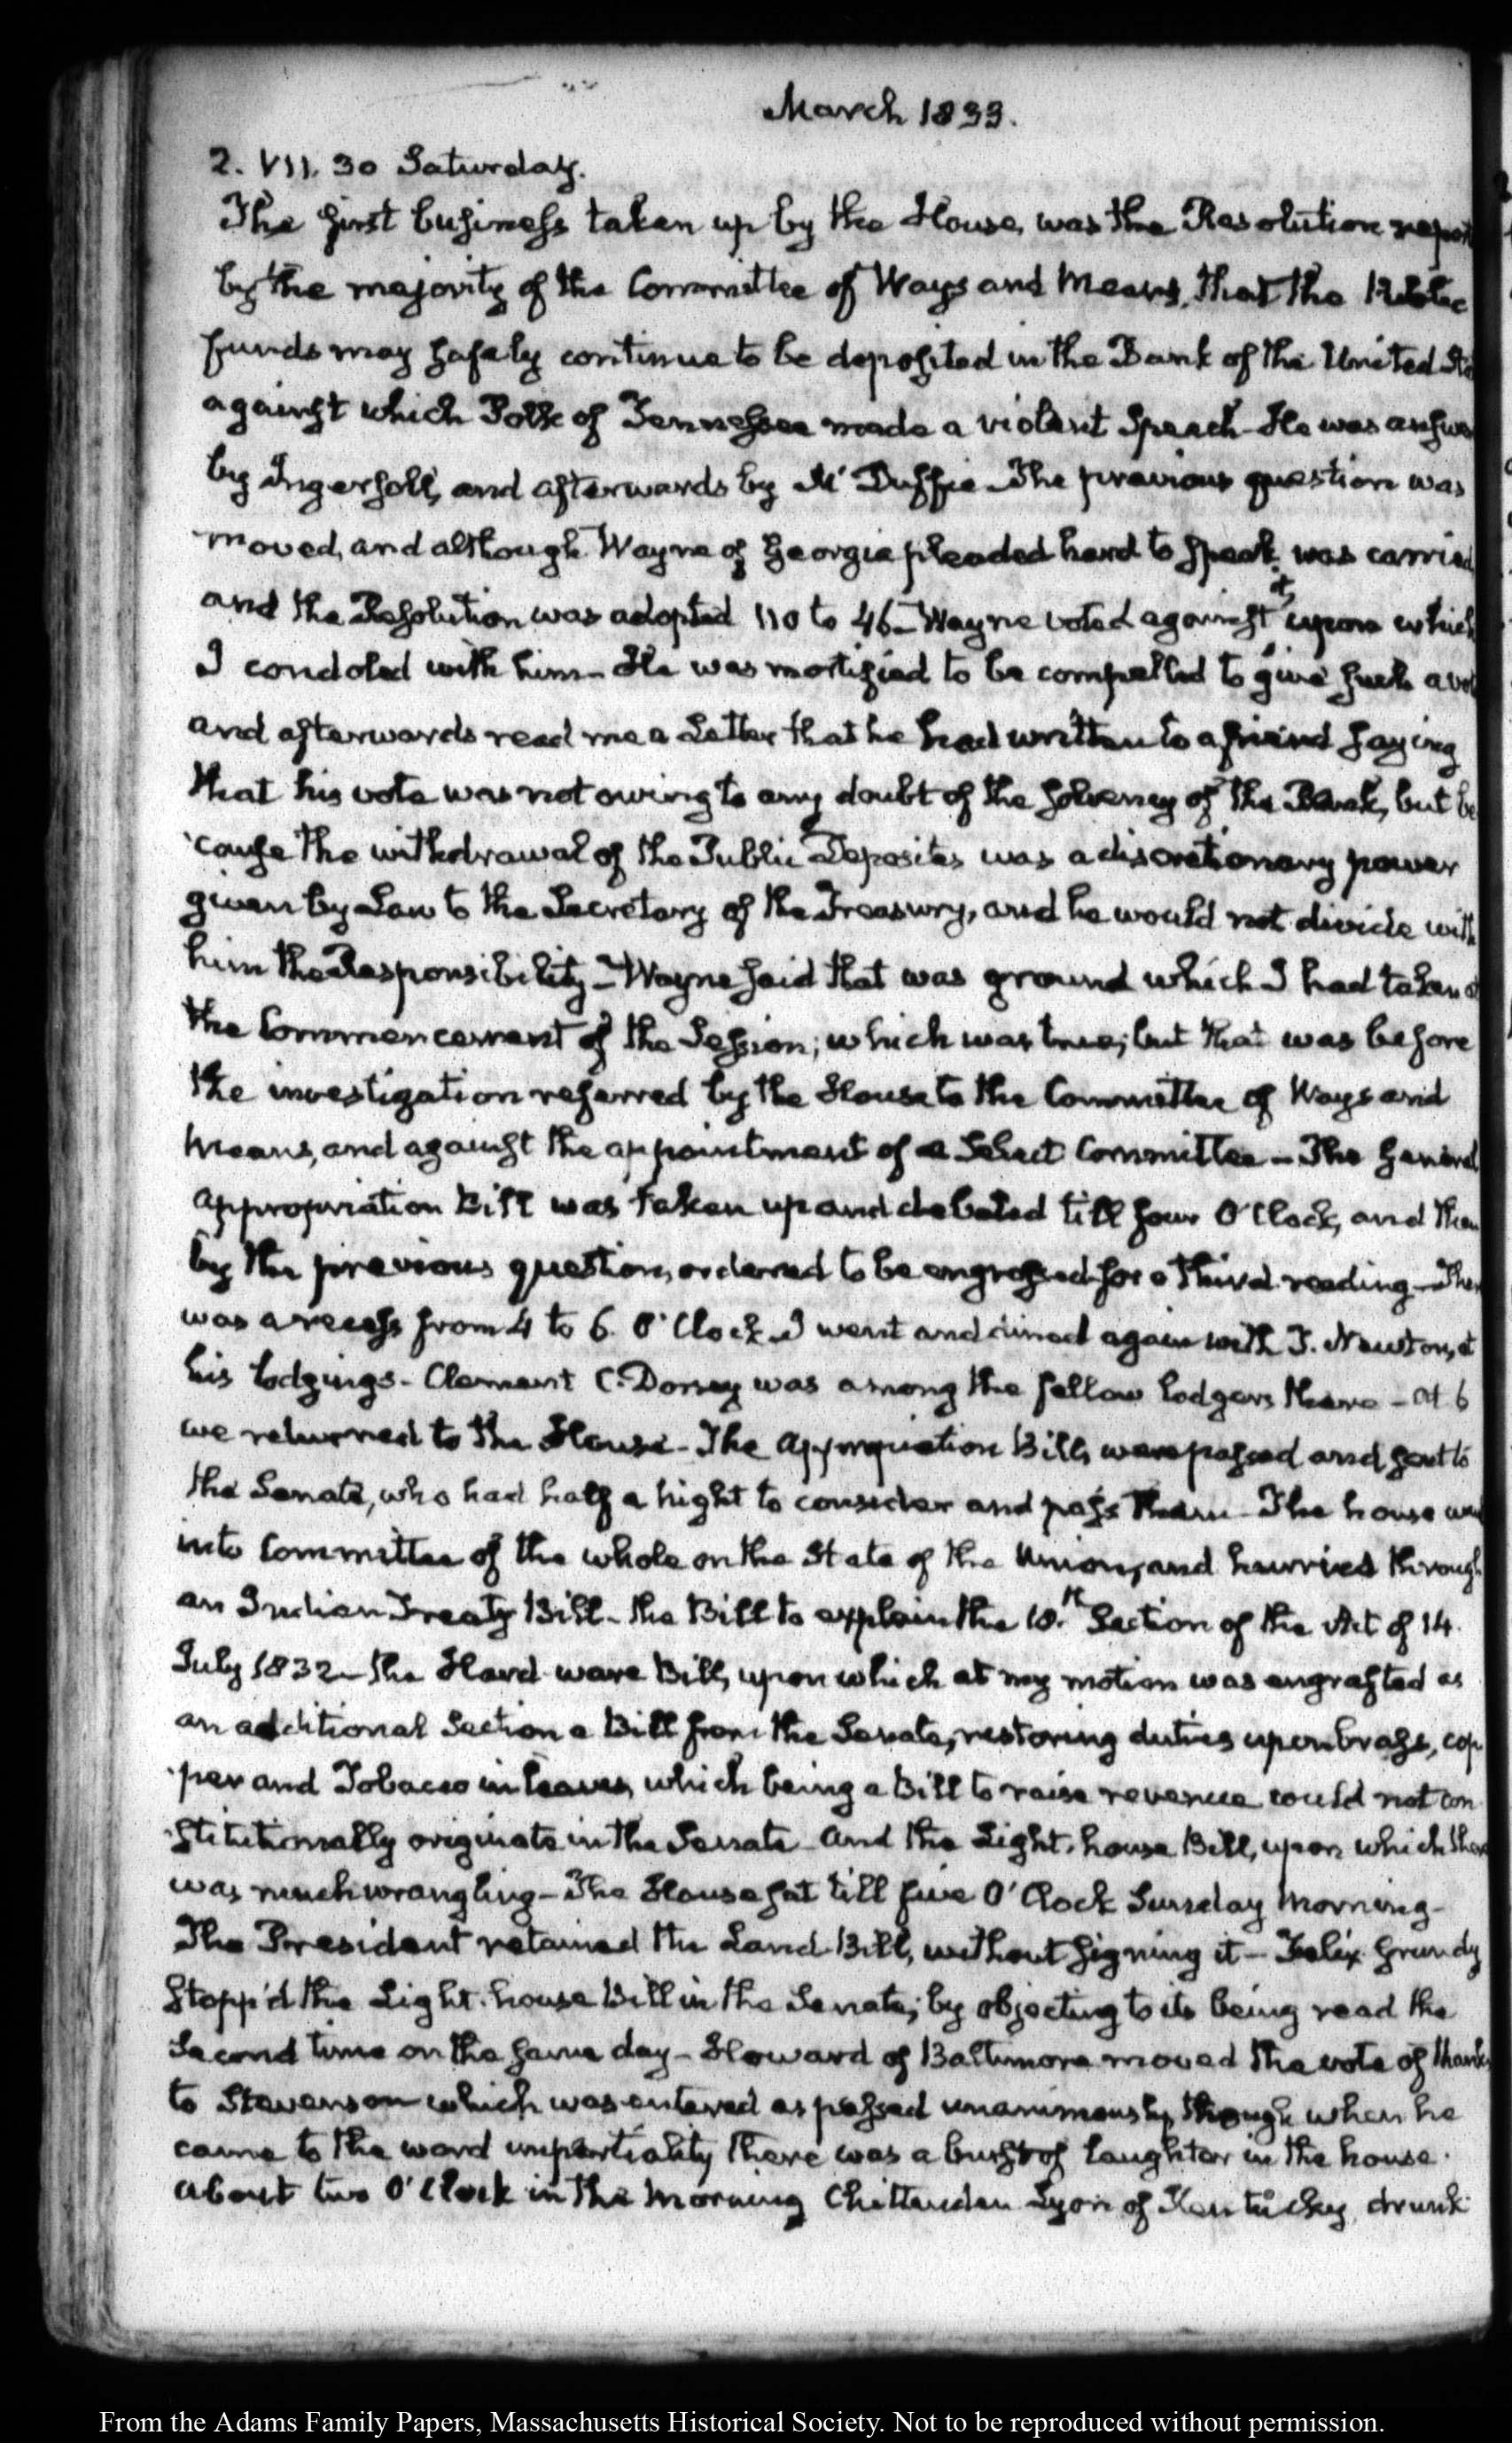 March 1833.
2. VII. 30 Saturday.
The first business taken up by the House, was the Resolution repor
by the majority of the Committee of Ways and Means, that the Public
funds may safely continue to be deposited in the Bank of the United Sta
against which Polk of Tennessee made a violent Speech. He was answe
by Ingersoll, and afterwards by Mc Duffie. The previous question was
moved, and although Wayne of Georgia pleaded hard to speak, was carried
and the Resolution was adopted 110 to 46 - Wayne voted against it, upon which
I condoled with him - He was mortified to be compelled to give such a vot
and afterwards read me a Letter that he had written to a friend saying
that his vote was not owing to any doubt of the solvency of the Bank, but be
cause the withdrawal of the Public Deposites was a discretionary power
given by Law to the Secretary of the Treasury, and he would not divide with
him the Responsibility - Wayne said that was ground which I had taken a
the Commencement of the Session; which was true; but that was before
the investigation referred by the House to the Committee of Ways and
Means, and against the appointment of a Select Committee - The General
Appropriation Bill was taken up and debated till four O'Clock, and then
by the previous question, ordered to be engrossed for a third reading - Ther
was a recess from 4 to 6. O'Clock. I went and dined again with T. Newton, at
his lodgings - Clement C. Dorsey was among the fellow lodgers there - At 6
we returned to the House - The Appropriation Bills were passed and sent to
the Senate, who had half a night to consider and pass them - The house wen
into Committee of the whole on the State of the Union, and hurried through
an Indian Treaty Bill - the Bill to explain the 18.th Section of the Act of 14.
July 1832 - the Hard ware Bill, upon which at my motion was engrafted as
an additional Section a Bill from the Senate, restoring duties upon brass, cop
per and Tobacco in leaves, which being a Bill to raise revenue could not con
stitutionally originate in the Senate - And the Light-house Bill, upon which ther
was much wrangling - The House sat till five O'Clock Sunday Morning -
The President retained the Land Bill, without signing it - Felix Grundy
stopp'd the Light-house Bill in the Senate; by objecting to its being read the
Second time on the same day - Howard of Baltimore moved the vote of thanks
to Stevenson which was entered as passed unanimously, though when he
came to the word impartiality there was a burst of laughter in the house.
About two O'Clock in the Morning Chittenden Lyon of Kentucky, drunk
From the Adams Family Papers, Massachusetts Historical Society. Not to be reproduced without permission.